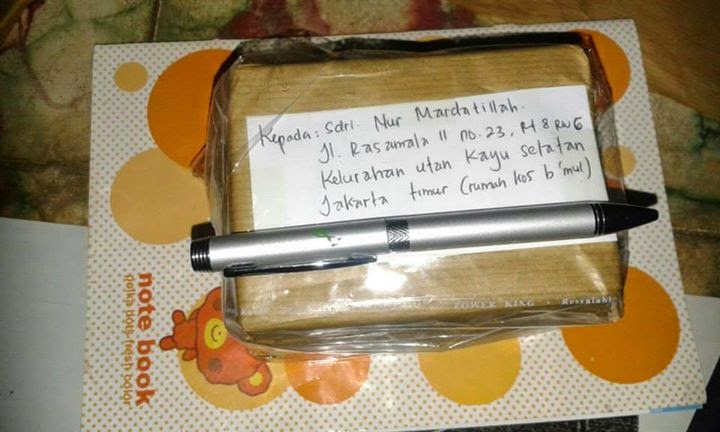 Kepada: Sdri. Nur Mardatillah.
Jl. Rasamala II no. 23, Rt 8 RW 6
Kelurahan utan Kayu selatan
Jakarta timur (rumah kos b'mul)
POWER KING - Resealabl
note book
polka dots fresh color